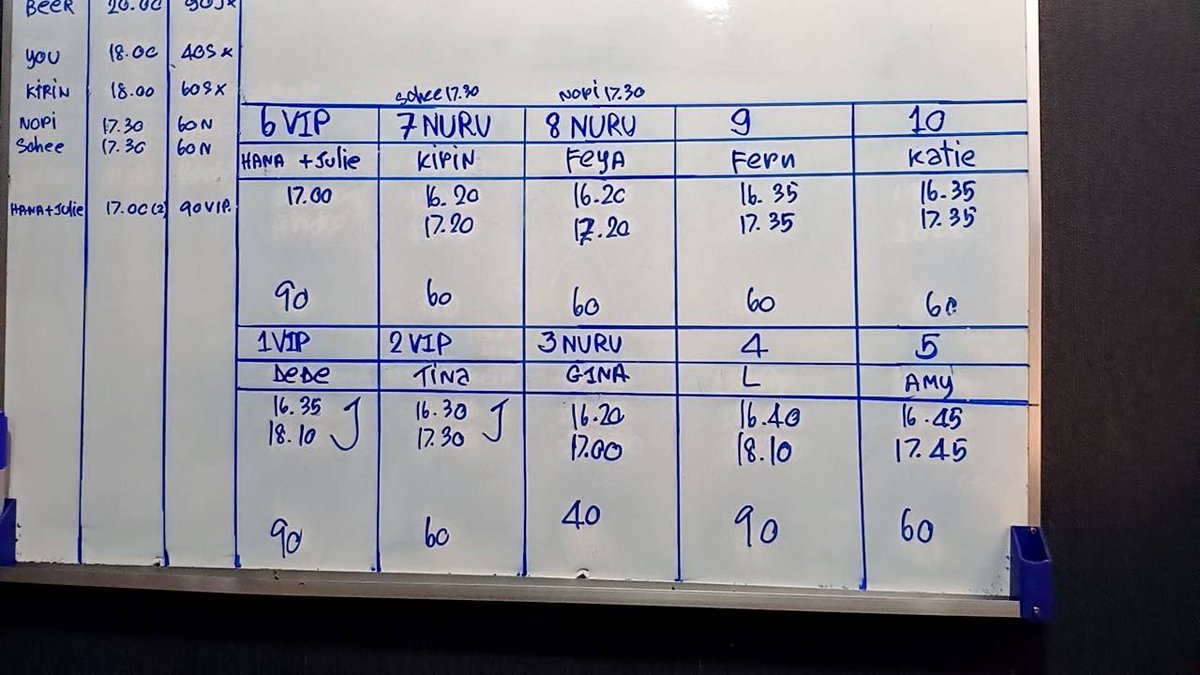 BEER 20.00
YOU 18.00 40Sx
KIRIN 18.00 60Sx
NOPI 17.30 60N
Sohee 17.30 60N
HANA+Julie 17.00(2) 90VIP.
Sohee 17.30 NOPI 17.30
6 VIP 7 NURU 8 NURU 9 10
HANA +Julie KIRIN FEYA Fern Katie
17.00 16.20 16.20 16.35 16.35
17.20 17.20 17.35 17.35
90 60 60 60 60
1 VIP 2 VIP 3 NURU 4 5
DEDE TINa GINA L AMY
16.35 16.30 16.20 16.40 16.45
18.10 17.30 17.00 18.10 17.45
90 60 40 90 60